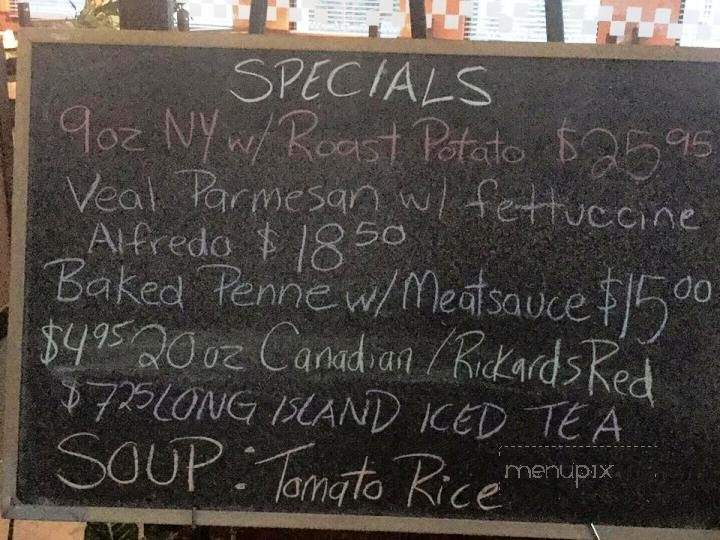 SPECIALS
9oz NY w/ Roast Potato $25.95
Veal Parmesan w/ fettuccine
Alfredo $18.50
Baked Penne w/ Meatsauce $15.00
$4.95 20oz Canadian / Rickards Red
$7.25 LONG ISLAND ICED TEA
SOUP: Tomato Rice
menupix